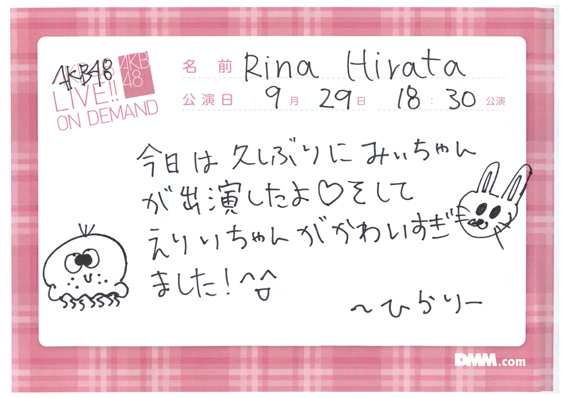 AKB48
AKB48
LIVE!!
ON DEMAND
名前 Rina Hirata
公演日 9月29日 18:30公演
今日は久しぶりにみぃちゃん
が出演したよ♡そして
えりぃちゃんがかわいすぎ
ました!^^
〜ひらりー
DMM.com